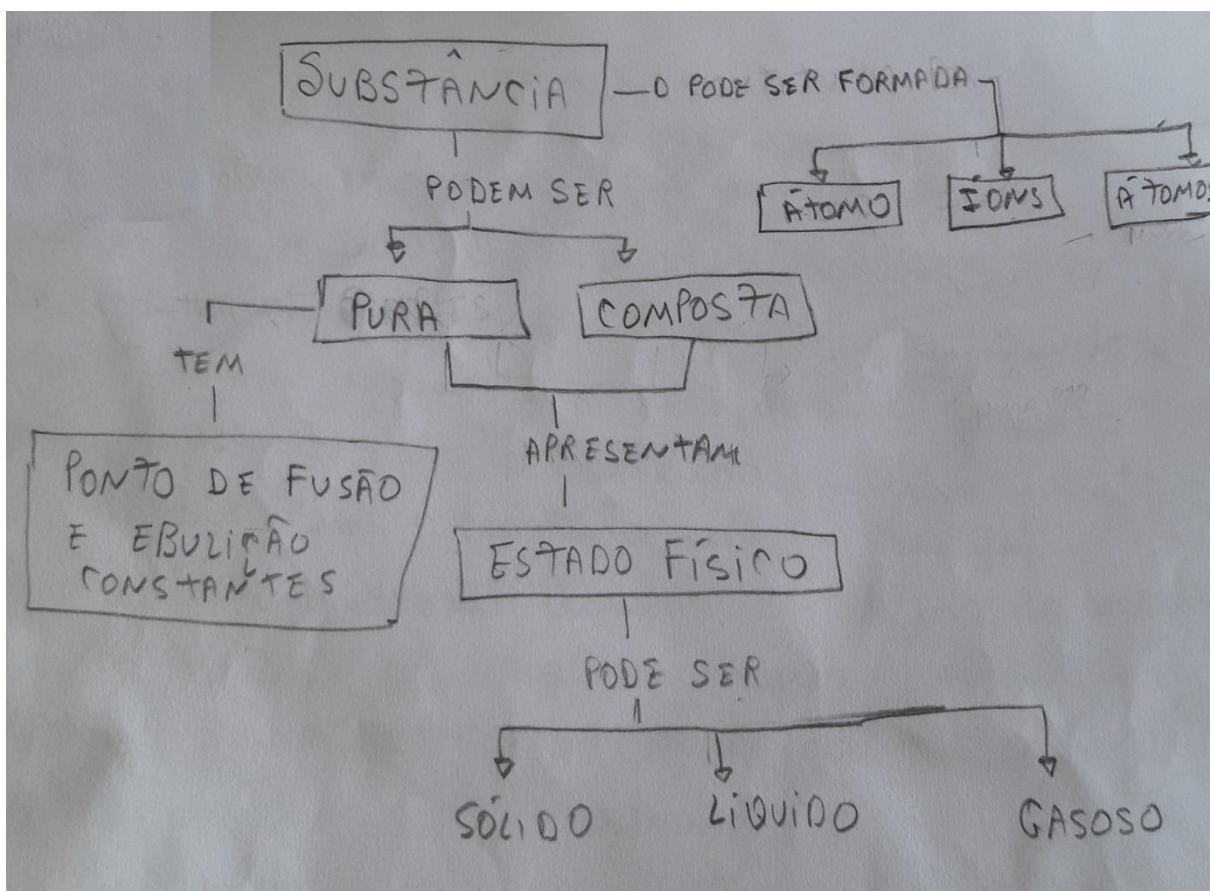 SUBSTÂNCIA
PODE SER FORMADA
ÁTOMO
ÍONS
ÁTOMOS
PODEM SER
PURA
COMPOSTA
TEM
APRESENTAM
PONTO DE FUSÃO
E EBULIÇÃO
CONSTANTES
ESTADO FÍSICO
PODE SER
SÓLIDO
LÍQUIDO
GASOSO